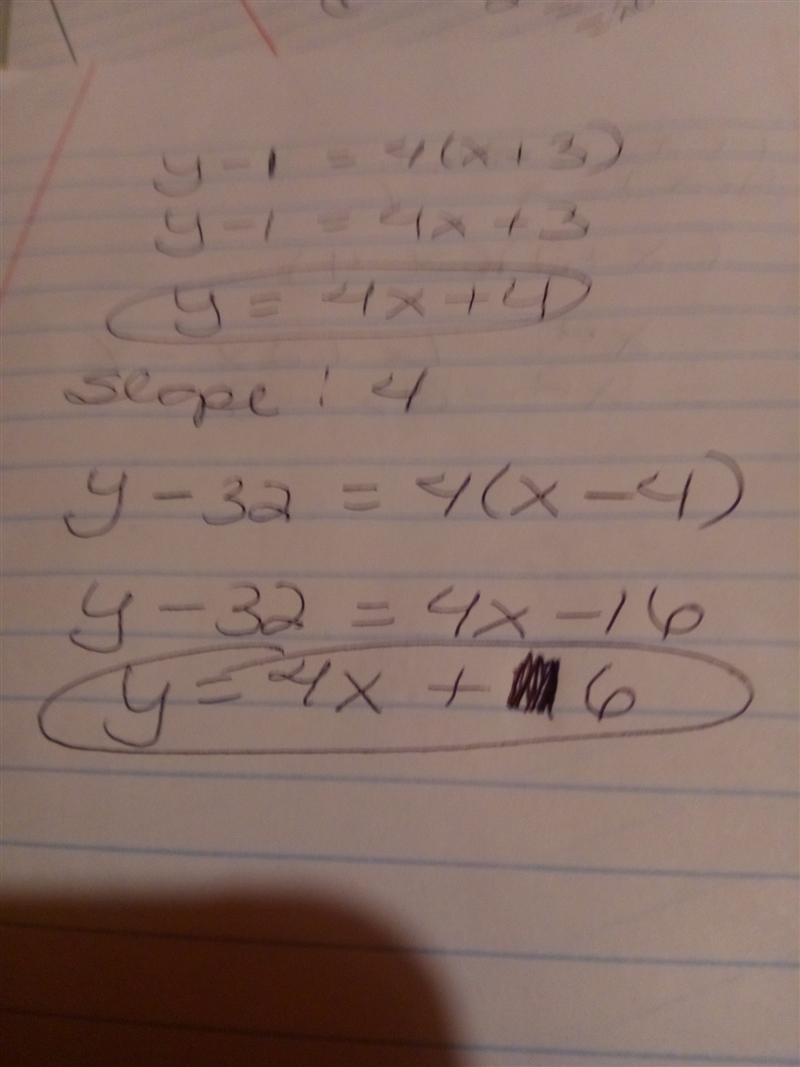 y - 1 = 4(x + 3)
y - 1 = 4x + 3
y = 4x + 4
slope: 4
y - 32 = 4(x - 4)
y - 32 = 4x - 16
y = 4x + 6